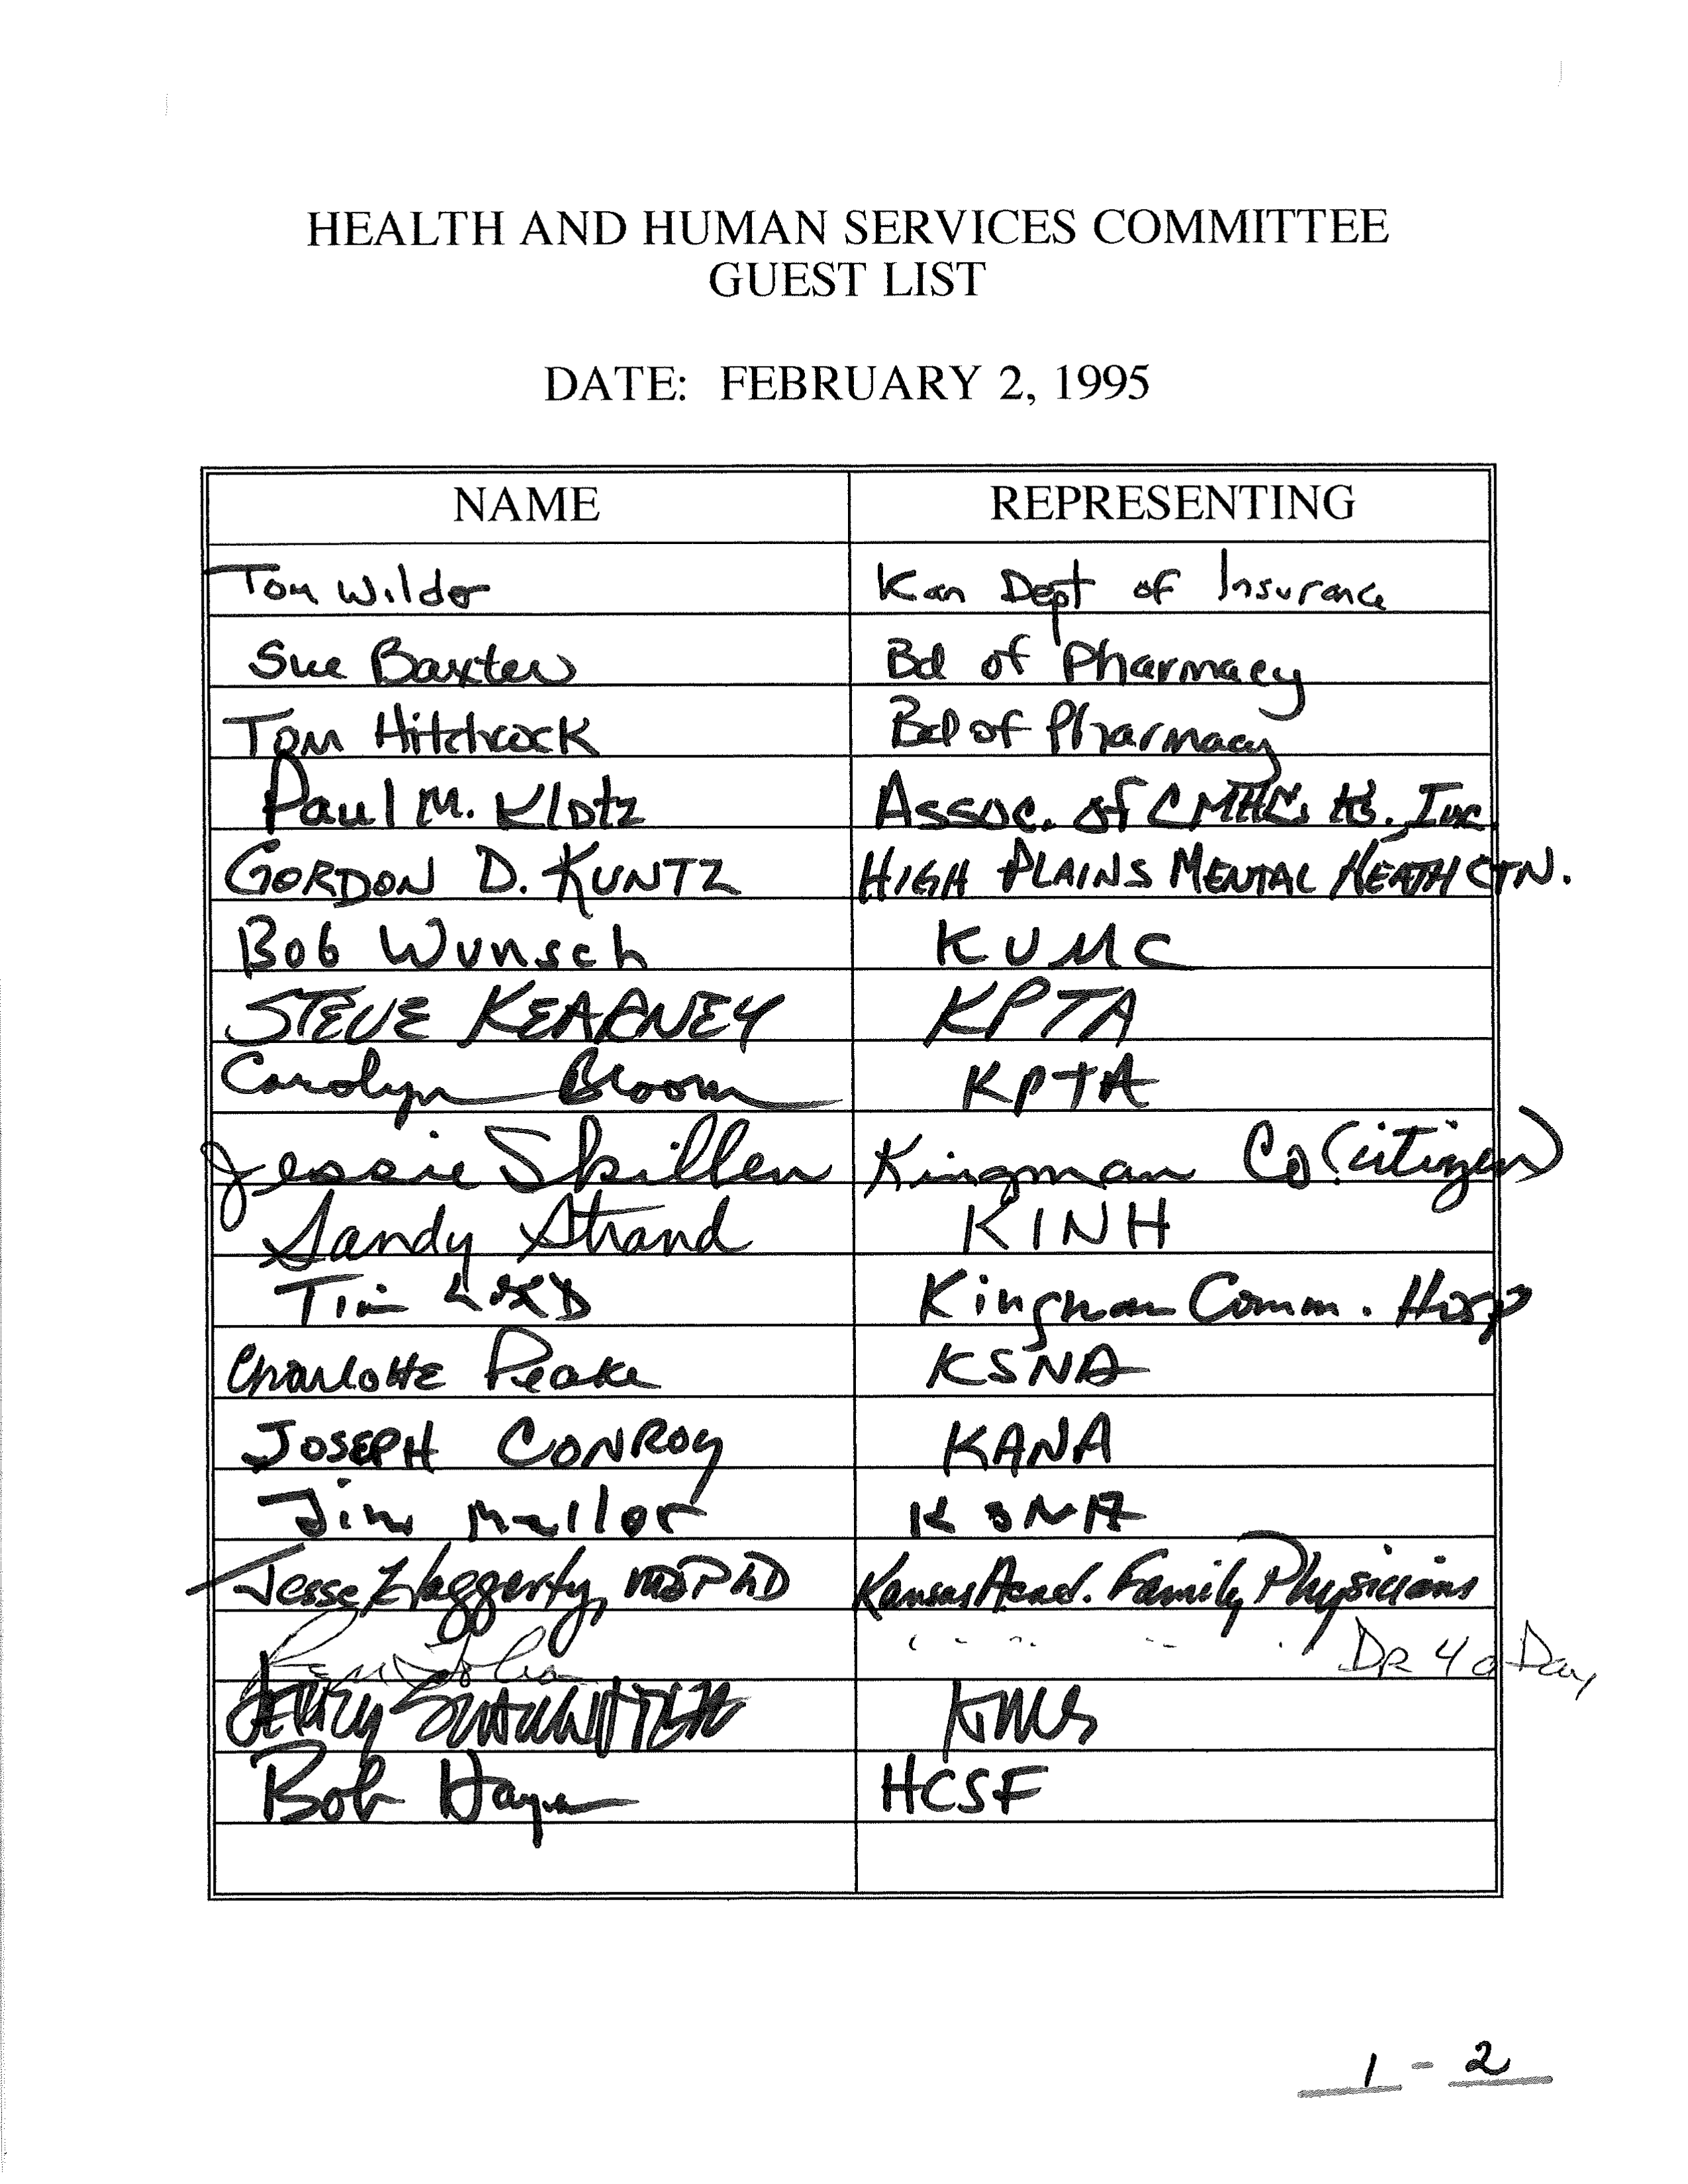 HEALTH AND HUMAN SERVICES COMMITTEE
GUEST LIST
DATE: FEBRUARY 2, 1995
NAME REPRESENTING
Tom Wilder Kan Dept of Insurance
Sue Baxter Bd of Pharmacy
Tom Hitchcock Bd of Pharmacy
Paul M. Klotz Assoc. of CMHCs Ks. Inc
GORDON D. KUNTZ HIGH PLAINS MENTAL HEATH CTN.
Bob Wunsch KUMC
STEVE KEARNEY KPTA
Carolyn Bloom KPTA
Jessie Skillen Kingman Co (citizen)
Sandy Strand KINH
Tim Kingman Comm. Hosp
Charlotte Peake KSNA
JOSEPH CONROY KANA
Jim KSNA
Jesse Haggerty, MD PhD Kansas Acad. Family Physicians
DR 4 a Day
KMS
Bob HCSF
1 - 2